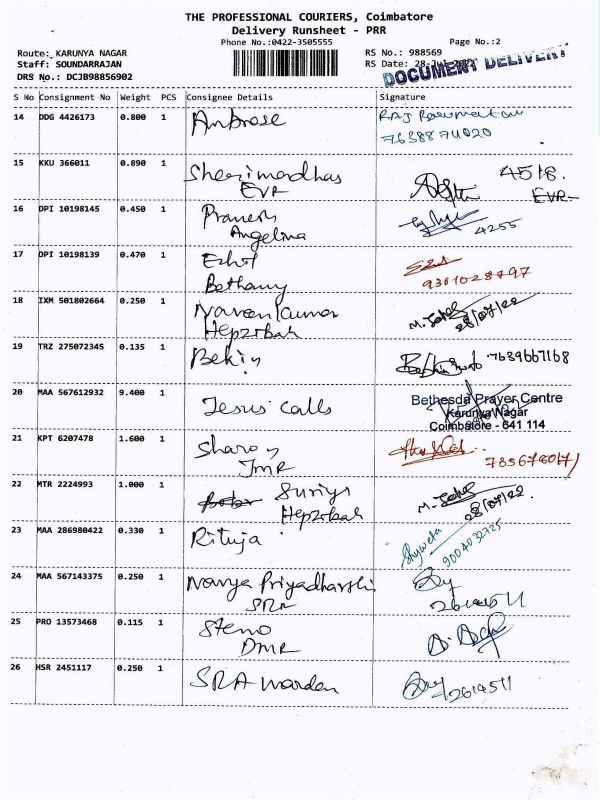 THE PROFESSIONAL COURIERS, Coimbatore
Delivery Runsheet - PRR
Phone No.:0422-3505555
Page No.:2
Route: KARUNYA NAGAR
RS No.: 988569
Staff: SOUNDARRAJAN
RS Date: 28-Jul-2022
DRS No.: DCJB98856902
DOCUMENT DELIVERY
S No Consignment No Weight PCS Consignee Details Signature
14 DDG 4426173 0.800 1 Ambrose
7638874020
15 KKU 366011 0.890 1 Sherimadhas 4518.
EVR EVR
16 DPI 10198145 0.450 1 Pranesh
Angelina 4255
17 DPI 10198139 0.470 1 Ezhil
Bethany 9361028797
18 IXM 501802664 0.250 1 Naveen Kumar
Hepzibah 28/07/22
19 TRZ 275072345 0.135 1 Bekin 7639667168
20 MAA 567612932 9.400 1 Jesus calls
Bethesda Prayer Centre
Karunya Nagar
Coimbatore - 641 114
21 KPT 6207478 1.600 1 Sharon
JMR
22 MTR 2224993 1.000 1 Suriya
Hepzibah 28/07/22.
23 MAA 286980422 0.330 1 Rituja Shyweta
9004032725
24 MAA 567143375 0.250 1 Navya Priyadharshi
SRA
25 PRO 13573468 0.115 1 Steno
DMR
26 HSR 2451117 0.250 1 SRA Warden 2614511